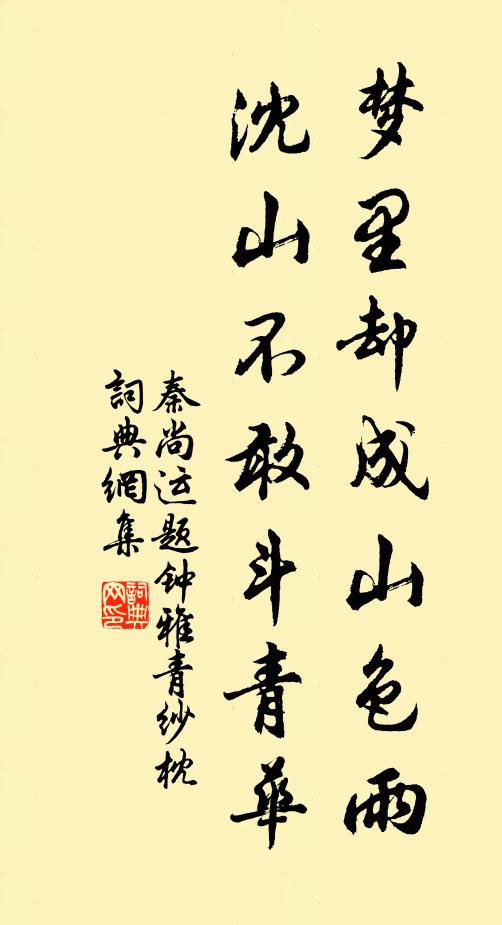 梦里却成山色雨
沈山不敢斗青华
秦尚运题钟雅青纱枕
詞典網集
詞典
网印